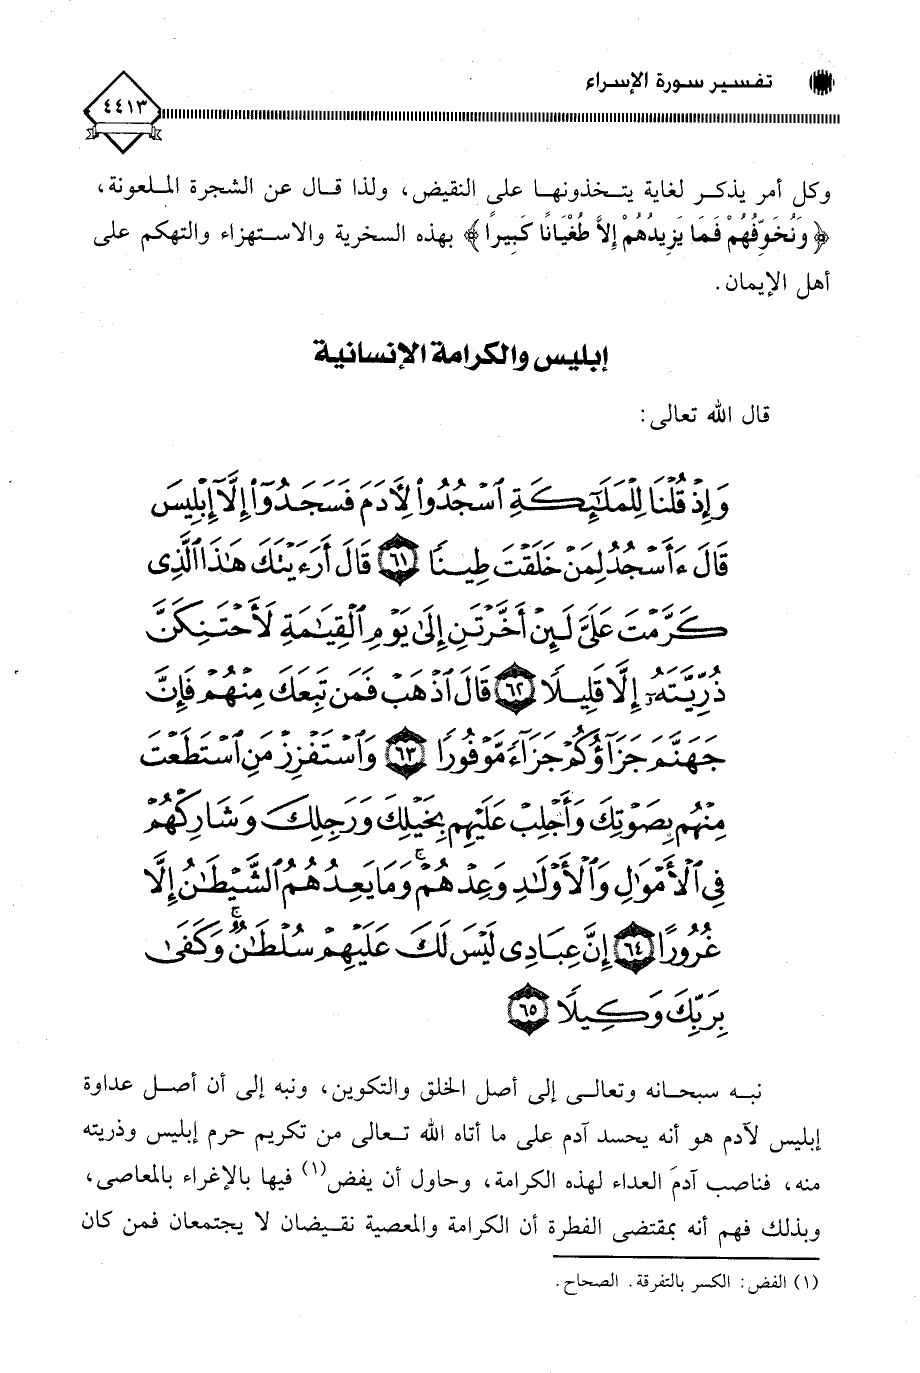 تفسير سورة الإسراء
٤٤١٣
وكل أمر يذكر لغاية يتخذونها على النقيض، ولذا قال عن الشجرة الملعونة،
﴿وَنُخَوِّفُهُمْ فَمَا يَزِيدُهُمْ إِلاَّ طُغْيَانًا كَبِيرًا﴾ بهذه السخرية والاستهزاء والتهكم على
أهل الإيمان.
إبليس والكرامة الإنسانية
قال الله تعالى:
وَإِذْ قُلْنَا لِلْمَلَٰٓئِكَةِ ٱسْجُدُوا۟ لِءَادَمَ فَسَجَدُوٓا۟ إِلَّآ إِبْلِيسَ
قَالَ ءَأَسْجُدُ لِمَنْ خَلَقْتَ طِينًا ٦١ قَالَ أَرَءَيْتَكَ هَٰذَا ٱلَّذِى
كَرَّمْتَ عَلَىَّ لَئِنْ أَخَّرْتَنِ إِلَىٰ يَوْمِ ٱلْقِيَٰمَةِ لَأَحْتَنِكَنَّ
ذُرِّيَّتَهُۥٓ إِلَّا قَلِيلًا ٦٢ قَالَ ٱذْهَبْ فَمَن تَبِعَكَ مِنْهُمْ فَإِنَّ
جَهَنَّمَ جَزَآؤُكُمْ جَزَآءً مَّوْفُورًا ٦٣ وَٱسْتَفْزِزْ مَنِ ٱسْتَطَعْتَ
مِنْهُم بِصَوْتِكَ وَأَجْلِبْ عَلَيْهِم بِخَيْلِكَ وَرَجِلِكَ وَشَارِكْهُمْ
فِى ٱلْأَمْوَٰلِ وَٱلْأَوْلَٰدِ وَعِدْهُمْ ۚ وَمَا يَعِدُهُمُ ٱلشَّيْطَٰنُ إِلَّا
غُرُورًا ٦٤ إِنَّ عِبَادِى لَيْسَ لَكَ عَلَيْهِمْ سُلْطَٰنٌ ۚ وَكَفَىٰ
بِرَبِّكَ وَكِيلًا ٦٥
نبه سبحانه وتعالى إلى أصل الخلق والتكوين، ونبه إلى أن أصل عداوة
إبليس لآدم هو أنه يحسد آدم على ما أتاه الله تعالى من تكريم حرم إبليس وذريته
منه، فناصب آدمَ العداء لهذه الكرامة، وحاول أن يفض(١) فيها بالإغراء بالمعاصى،
وبذلك فهم أنه بمقتضى الفطرة أن الكرامة والمعصية نقيضان لا يجتمعان فمن كان
(١) الفض: الكسر بالتفرقة. الصحاح.